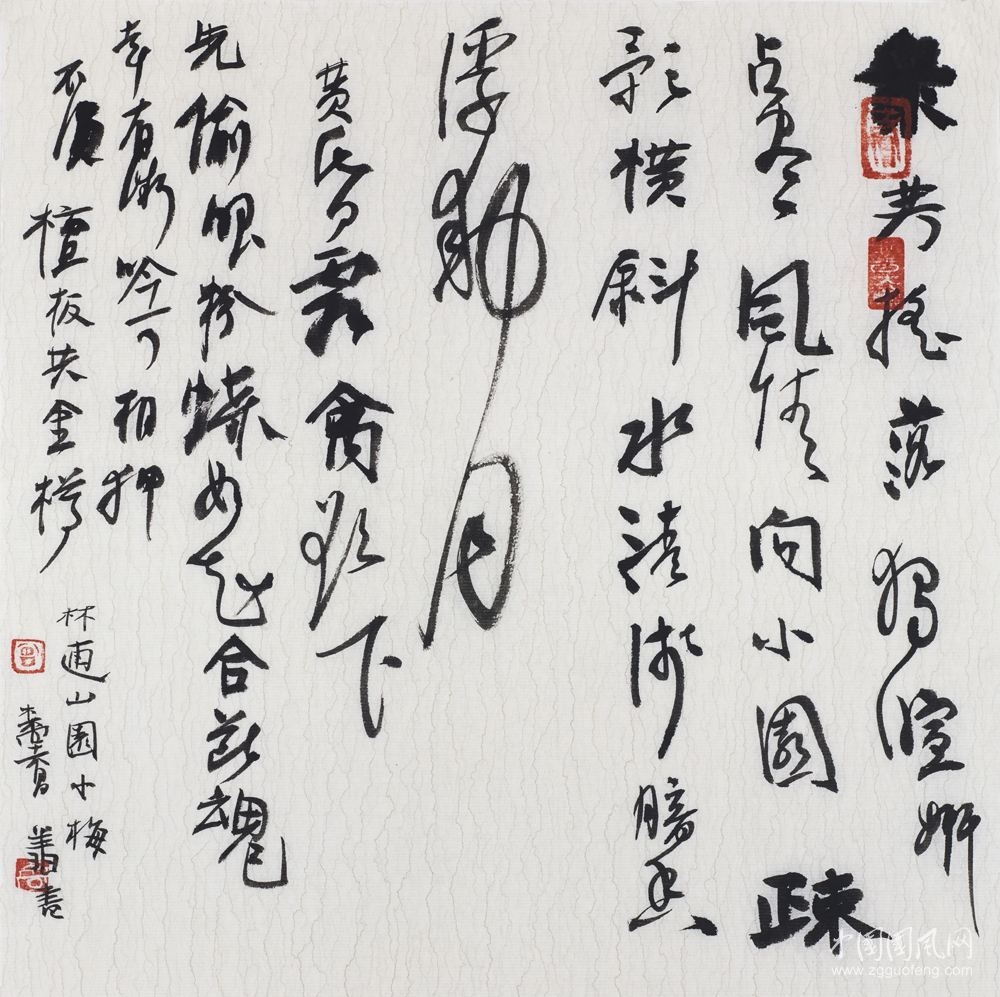 众芳摇落独暄妍
占尽风情向小园疎
影横斜水清浅暗香
浮动月
黄昏霜禽欲下
先偷眼粉蝶如知合断魂
幸有微吟可相狎
不须檀板共金樽
林逋山园小梅
书
中国国风网
www.zgguofeng.com